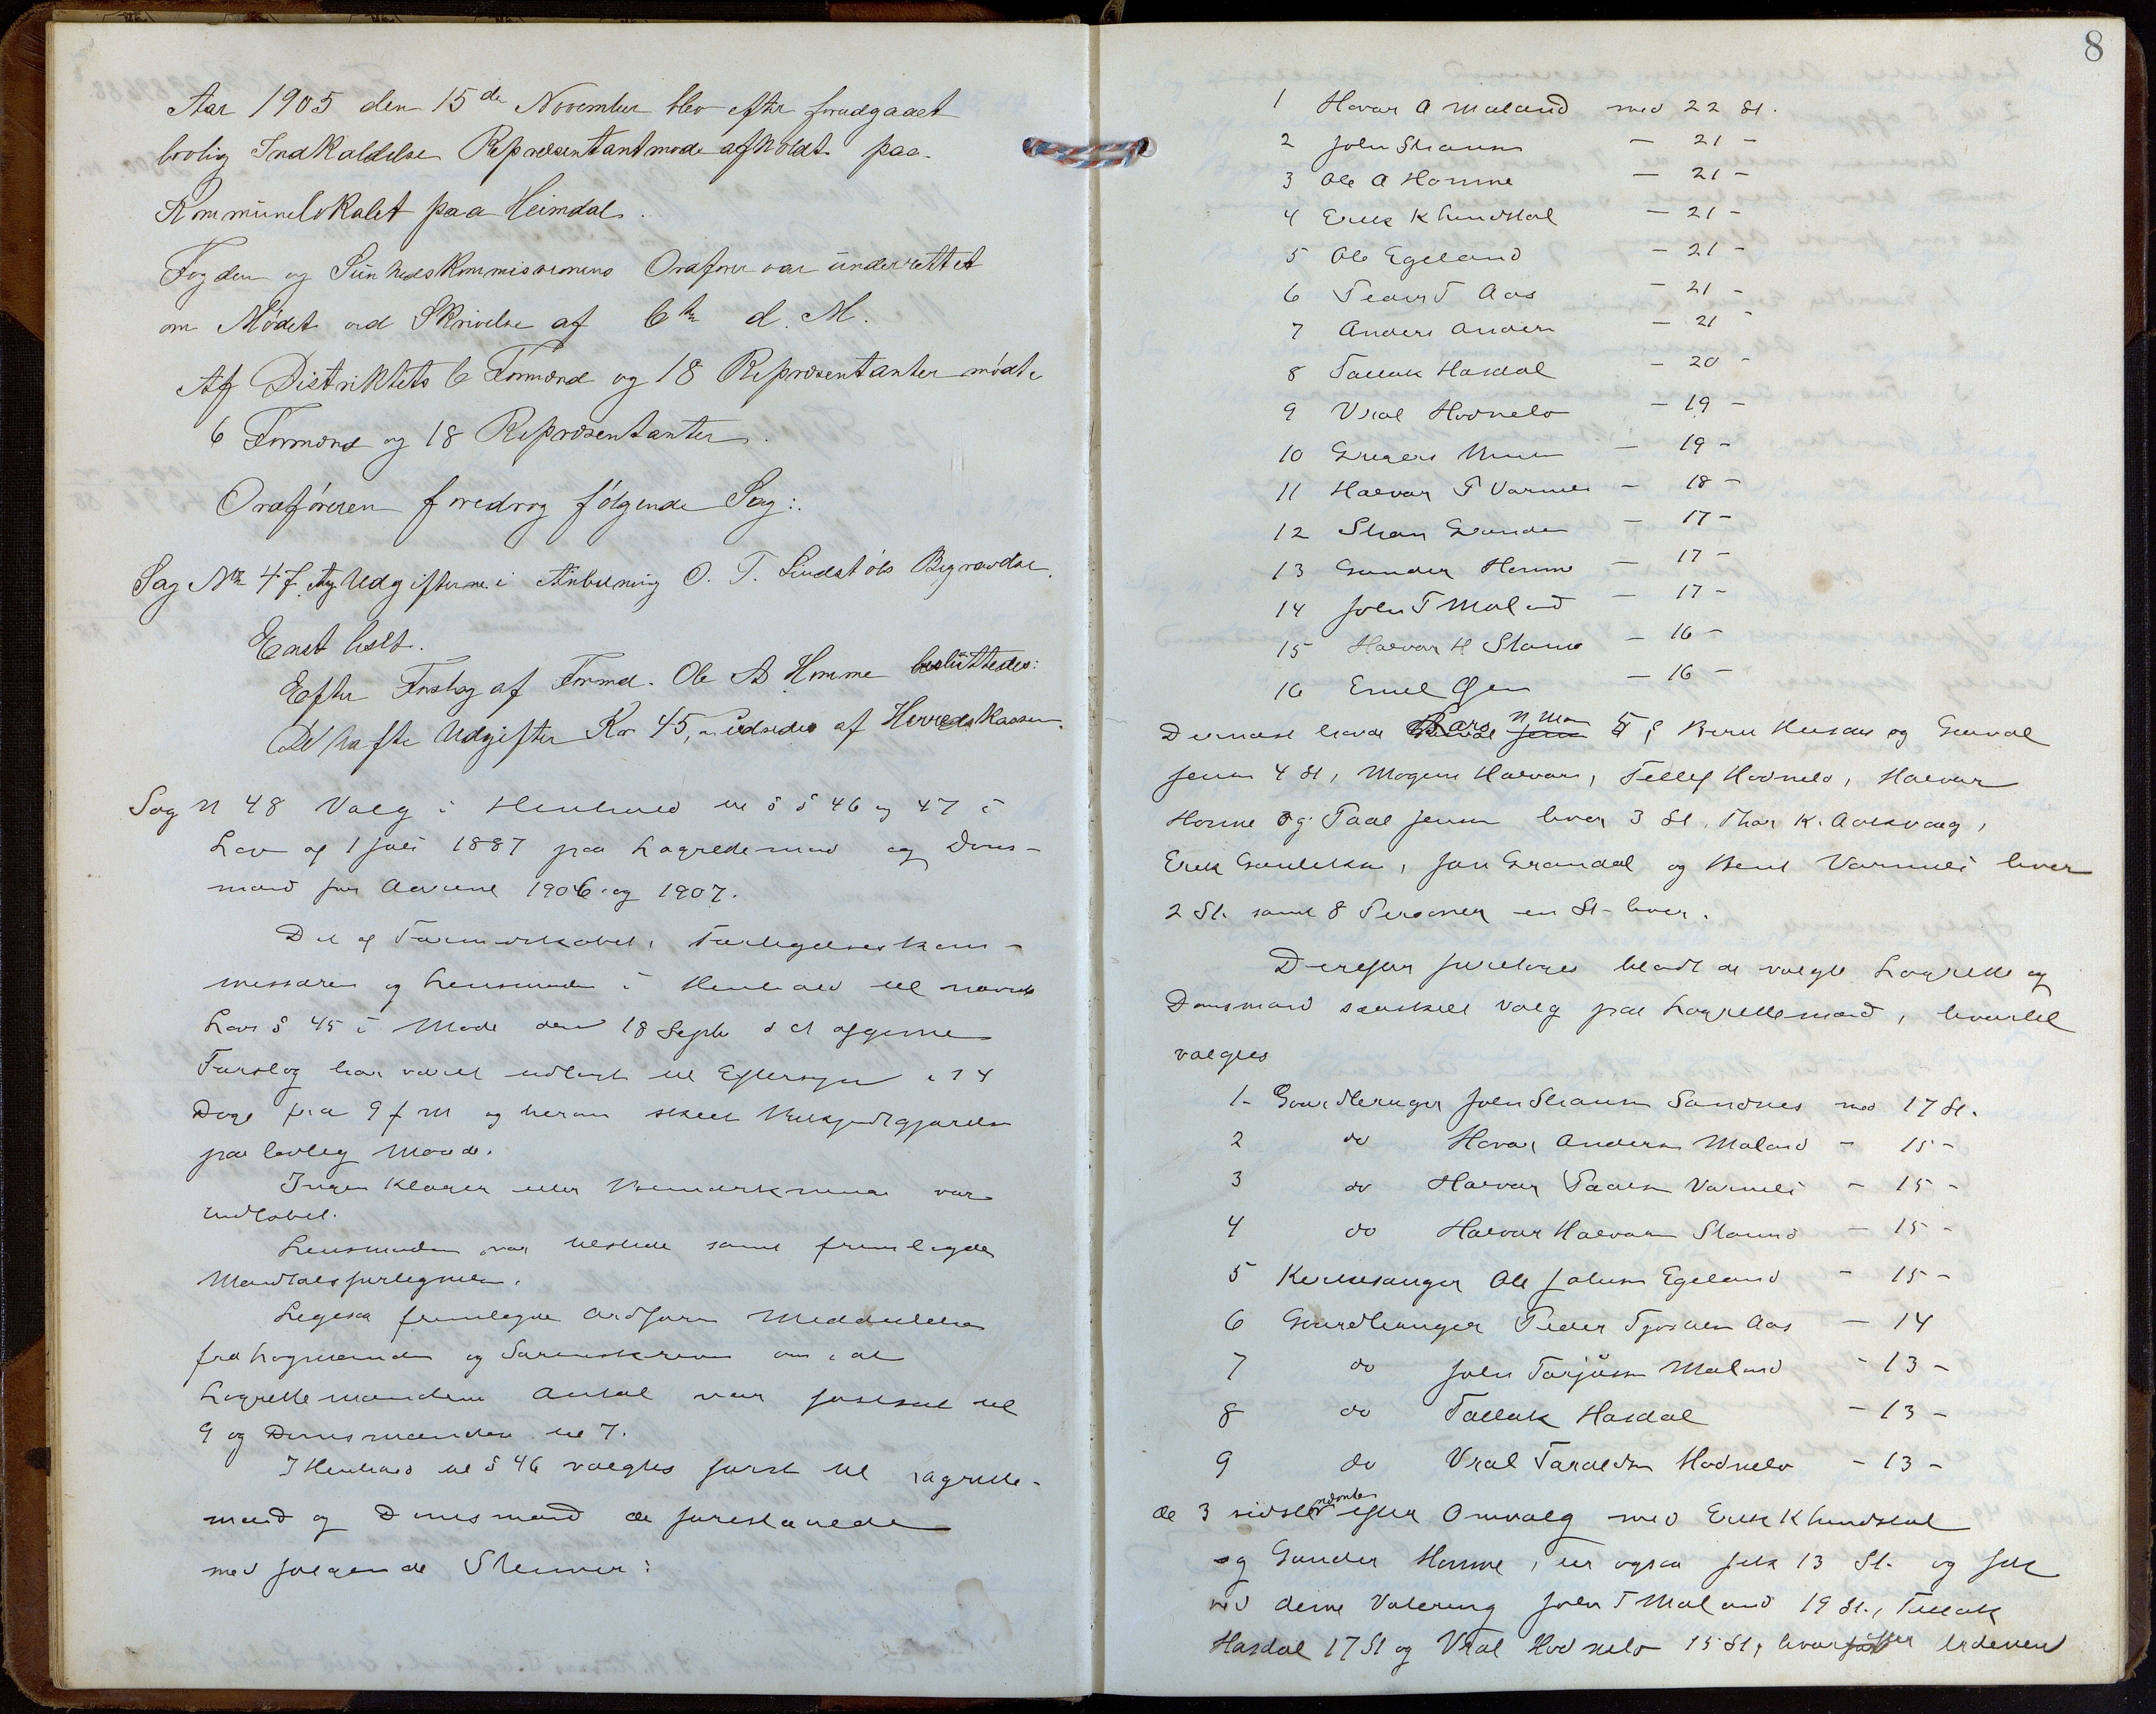 Aar 1905 den 15de November blev efter forudgaaet
lovlig Indkaldelse Repræsentantmøde afholdt paa
Kommunelokalet paa Heimdal.
Fogden og Sundhedskommissionens Ordfører var underrettet
om Mødet ved Skrivelse af 6te d. M.
Af Distriktets 6 Formænd og 18 Repræsentanter mødte
6 Formænd og 18 Repræsentanter.
Ordføreren foredrog følgende Sag:
Sag No 47. Udgifterne i Anledning O. T. Lindstøls Begravelse.
Enst besl.
Efter Forslag af Formd. Ole A Homme besluttedes:
De hafte Udgifter Kr 45, udredes af Herredskassen.
Sag N 48 Valg i Henhold til § § 46 og 47 i
Lov af 1 juli 1887 paa Lagrettemænd og Doms-
mænd for Aarene 1906 og 1907.
Det af Formandskabet, Forligelseskom-
missæren og Lensmanden i Henhold til nævnte
Lovs § 45 i Møde den 18 Septbr d A afgivne
Forslag har været udlagt til Eftersyn i 14
Dage fra 9 f M og herom skeet Bekjendtgjørelse
paa lovlig Maade.
Ingen Klager eller Bemærkninger var
indløbet.
Lensmanden var tilstede samt fremlagde
Mandtalsfortegnelsen.
Ligesaa fremlagde Ordføreren Meddelelse
fra Lagmanden og Sorenskriveren om, at
Lagrettemændenes Antal var fastsat til
9 og Domsmændene til 7.
I Henhold til § 46 valgtes først til Lagrette-
mænd og Domsmænd de forestaaende
med følgende Stemmer:
8
1 Havar A Maland med 22 St.
2 John Stiansen — 21 —
3 Ole A Homme — 21 —
4 Erik K Lindstøl — 21 —
5 Ole Egeland — 21 —
6 Peder T Aas — 21 —
7 Anders Andersen — 21 —
8 Tallak Hasdal — 20 —
9 Vral Hodnebø — 19 —
10 Gregers — 19 —
11 Halvor P Varmeli — 18 —
12 Stian — 17 —
13 Gunder Homme — 17 —
14 John T Maland — 17 —
15 Halvor H Stamsø — 16 —
16 Emil — 16 —
Dernæst havde Lars N. Moe 5, Bernt og Gunval
Jensen 4 St, Mogens Halvorsen, Tellef Hodnebø, Halvor
Homme og Paal Jensen hver 3 St, Thor K. Aaskvaag,
Erik Gundersen, Jon Grandal og Bent Varmeli hver
2 St. samt 8 Personer en St. hver.
Derefter foretoges blandt de valgte Lagrette og
Domsmænd særskilt Valg paa Lagrettemænd, hvortil
valgtes
1. Gaardbruger John Stiansen Sandnes med 17 St.
2 do Havar Andersen Maland — 15 —
3 do Halvor Paalsen Varmeli — 15 —
4 do Halvor Halvorsen Stamsø — 15 —
5 Kirkesanger Ole Johnsen Egeland — 15 —
6 Gaardbruger Peder Tjostolsen Aas — 14
7 do John Torjusen Maland — 13 —
8 do Tallak Hasdal — 13 —
9 do Vral Taraldsen Hodnebø — 13 —
de 3 sidstnævnte efter Omvalg med Erik K Lindstøl
og Gunder Homme, der ogsaa fik 13 St. og fik
ved denne Votering John T Maland 19 St., Tallak
Hasdal 17 St og Vral Hodnebø 15 St, hvorefter Ordenen